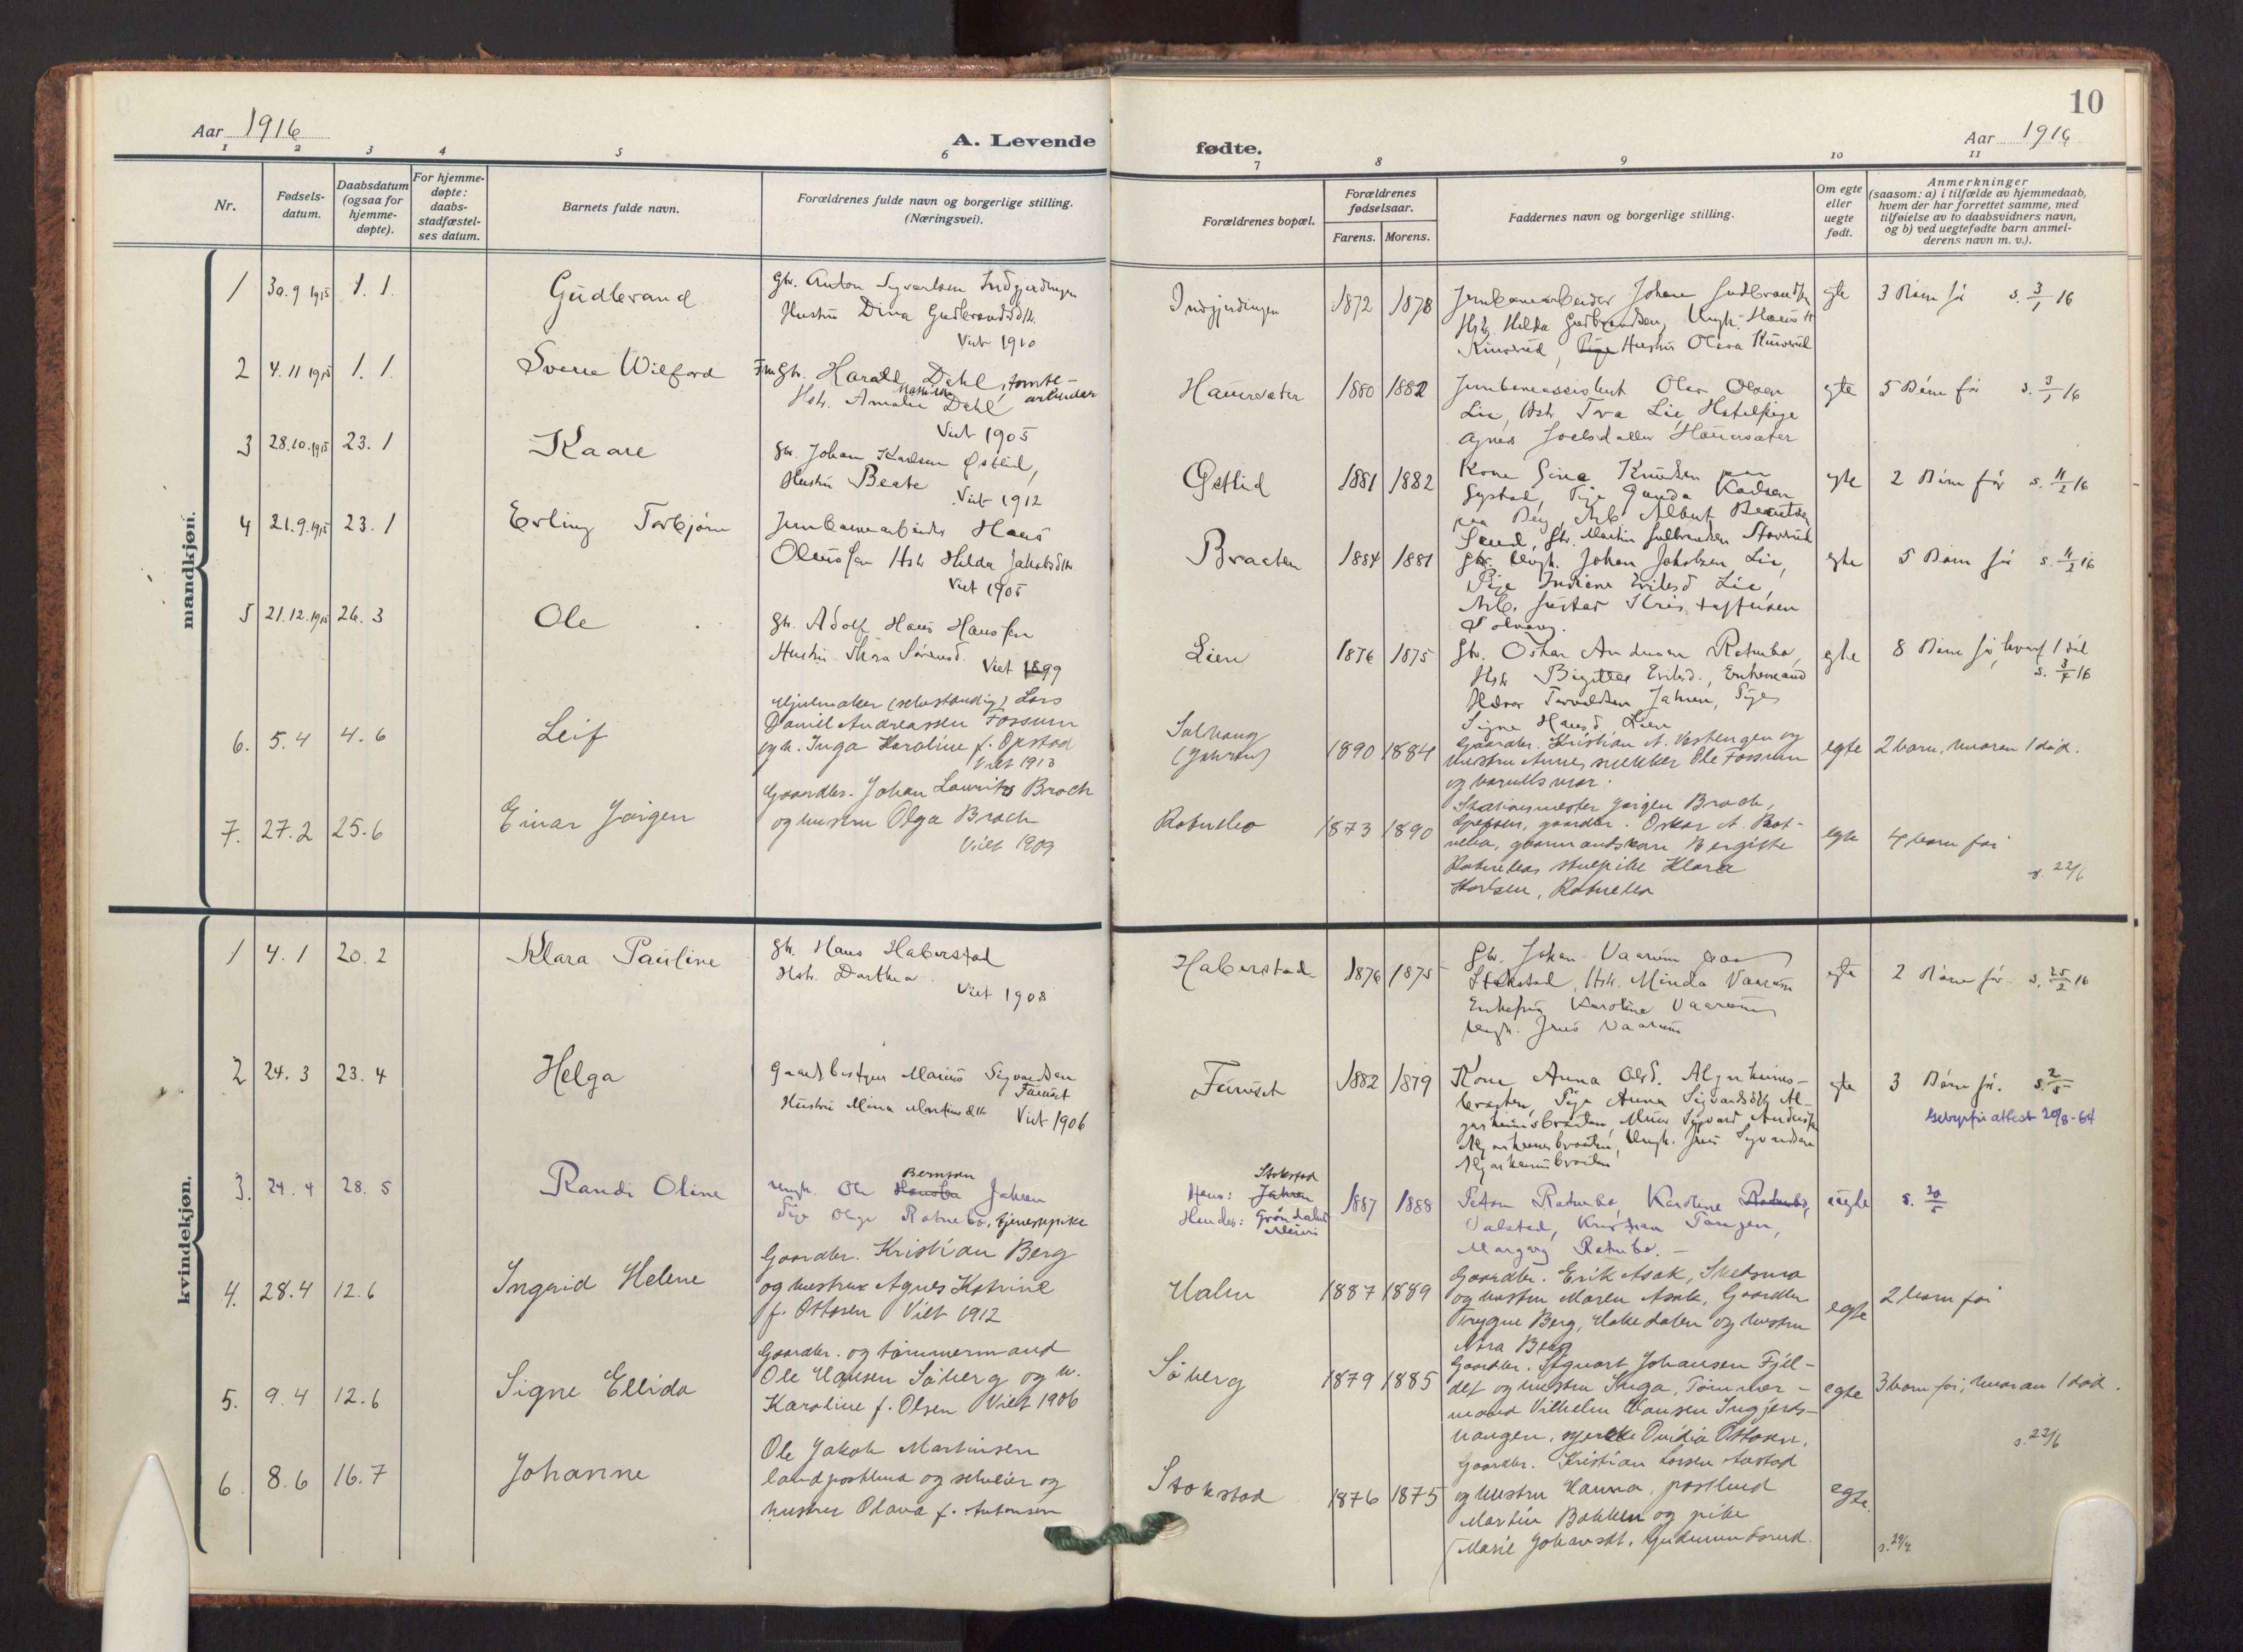 10
Aar 1916
A. Levende
fødte.
Aar 1916
1 2 3 4 5 6 7 8 9 10 11
Nr.
Fødsels-
datum.
Daabsdatum
(ogsaa for
hjemme-
døpte).
For hjemme-
døpte:
daabs-
stadfæstel-
ses datum.
Barnets fulde navn.
Forældrenes fulde navn og borgerlige stilling.
(Næringsvei).
Forældrenes bopæl.
Forældrenes
fødselsaar.
Farens. Morens.
Faddernes navn og borgerlige stilling.
Om egte
eller
uegte
født.
Anmerkninger
(saasom: a) i tilfælde av hjemmedaab,
hvem der har forrettet samme, med
tilføielse av to daabsvidners navn,
og b) ved uegtefødte barn anmel-
derens navn m. v.).
mandkjøn.
1 30.9 1915 1.1.
Gudbrand
Gbr. Anton Sigvartsen
Hustru Dina Gudbrandsdtr.
Viet 1910
1872 1878
Jernbanearbeider Johan Gudbrandsen
Hstr. Hilda Gudbrandsen, Ungk. Hans
Hustru Olava
egte
3 Børn før s. 3/1 16
2 4.11 1915 1.1.
Sverre Wilford
Gbr. Harald Dahl, tomte-
arbeider
Hstr. Amalie Mathilde Dahl
Viet 1905
Hauersæter
1880 1882
Jernbaneassistent Olav Olsen
Lie, Hstr Tora Lie, Hotelpige
Agnes Hauersæter
egte
5 Børn før s. 3/1 16
3 28.10.1915 23.1
Kaare
Gbr. Johan Karlsen Østlid,
Hustru Beate
Viet 1912
Østlid
1881 1882
Kone Gina Knudsen paa
Pige Karlsen
paa Berg, Arb. Albert
Sand, Gbr. Martin Gulbrandsen
egte
2 Børn før s. 11/2 16
4 21.9.1915 23.1
Erling Torbjørn
Jernbanearbeider Hans
Olaussen Hstr Hilda Jakobsdtr.
Viet 1905
Braaten
1884 1881
Ungk. Johan Jakobsen Lie,
Pige Lie,
Arb. Gustav Kris
Solvang.
egte
5 Børn før s. 11/2 16
5 21.12.1915 26.3
Ole
Gbr. Adolf Hans Hanssen
Hustru Thora Sørensd.
Viet 1899
Lien
1876 1875
Gbr. Oskar Andersen Ratnebo,
Hstr Birgitte Eriksd., Enkemand
Halvor Torvaldsen Jahren, Pige
Signe Hansd. Lien
egte
8 Børn før, hvoraf 1 død
s. 3/4 16
6. 5.4 4.6
Leif
Hjulmaker (selvstændig) Lars
Daniel Andreassen Fossum
og h. Inga Karoline f. Opstad
Viet 1913
Solvang
(Jahren)
1890 1884
Gaardbr. Kristian A. Vestengen og
hustru Anne, snekker Ole Fossum
og barnets mor.
egte
2 barn, hvorav 1 død.
7. 27.2 25.6
Einar Jørgen
Gaardbr. Johan Lauritz Broch
og hustru Olga Broch
Viet 1909
Ratnebo
1873 1890
Stationsmester Jørgen Broch,
gaardbr. Oskar A. Rat-
nebo, gaardmandskone Bergitte
Ratnebo, stuepike Klara
Karlsen, Ratnebo
egte
4 barn før
s. 22/6
kvindekjøn.
1 4.1 20.2
Klara Pauline
Gbr. Hans Haberstad
Hstr. Dorthea
Viet 1908
Haberstad
1876 1875
Gbr. Johan Vaarum paa
Stokstad, Hstr. Minda Vaarum
Enkefru Karoline Vaarum
Ungk. Jens Vaarum
egte
2 Børn før s. 25/2 16
2 24.3 23.4
Helga
Gaardbestyrer Marius Sigvardsen
Furuset
Hustru Mina Martinsdtr.
Viet 1906
Furuset
1882 1879
Kone Anna Olsd. Algarheims-
braaten, Pige Anna Sigvardsdtr. Al-
garheimsbraaten, Murer Sigvard Andersen
Algarheimsbraaten, Ungk. Jens Sigvardsen
Algarheimsbraaten
egte
3 Børn før. s. 2/5
Gebyrfri attest 20/8-64
3. 24.4 28.5
Randi Oline
Ungk. Ole Hansen Bernsen Jahren
Pige Olga Ratnebo, tjenestepike
Hans: Jahren Stokstad
Hendes: Grøndalen
Meieri
1887 1888
Petra Ratnebo, Karoline Ratnebo,
Dalstad, Kristian Tangen,
Margarg Ratnebo. —
uegte
s. 30/5
4. 28.4 12.6
Ingrid Helene
Gaardbr. Kristian Berg
og hustru Agnes Katrine
f. Ottosen Viet 1912
Holm
1887 1889
Gaardbr. Erik Asak, Skedsmo
og hustru Maren Asak, Gaardbr
Trygve Berg, Hakedalen og hustru
Nora Berg
egte
2 barn før
5. 9.4 12.6
Signe Ellida
Gaardbr. og tømmermand
Ole Hansen Søberg og h.
Karoline f. Olsen Viet 1906
Søberg
1879 1885
Gaardbr. Sigvart Johansen Fjel-
det og hustru Inga, Tømmer-
mand Vilhelm Hansen Ingjerds-
haugen, syerske Ovidia Ottosen.
egte
3 barn før, hvorav 1 død.
s. 22/6
6. 8.6 16.7
Johanne
Ole Jakob Martinsen
landpostbud og selveier og
hustru Olava f. Antonsen
Stokstad
1876 1875
Gaardbr. Kristian Larsen Austad
og hustru Hanna, postbud
Martin Bakken og pike
Marie Johansdt. Gudmundsrud.
egte.
s. 29/7